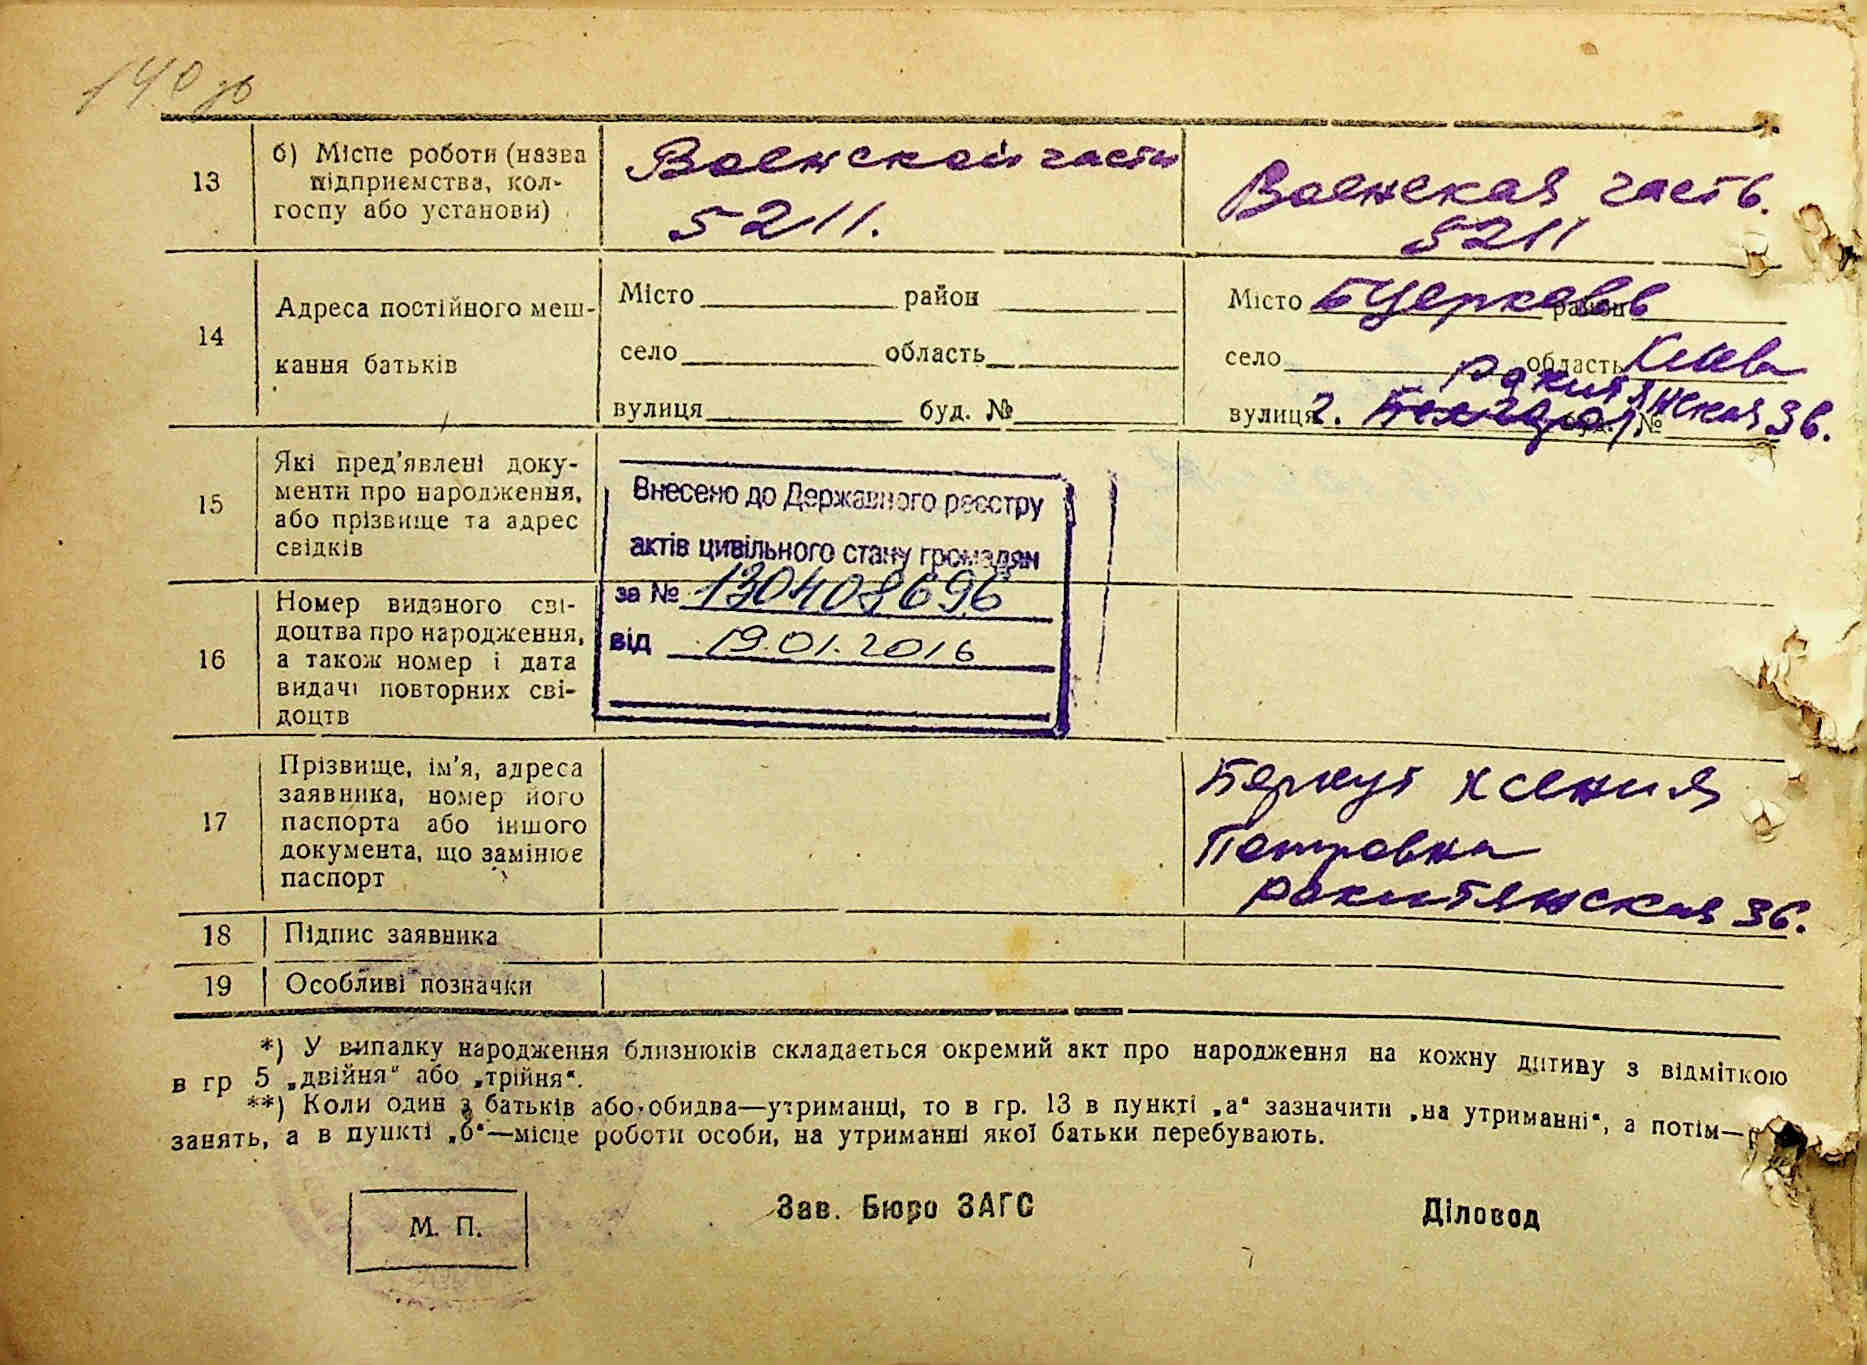 140 зв
13
б) Місце роботи (назва
підприємства, кол-
госпу або установи)
Воен ской части
5211.
Воен ская часть.
5211
14
Адреса постійного меш-
кання батьків
Місто район
село область
вулиця буд. №
Місто Б Церковь район
село область Киев
Ракитянская 36.
вулиця г. буд. №
15
Які пред'явлені доку-
менти про народження,
або прізвище та адрес
свідків
Внесено до Державного реєстру
актів цивільного стану громадян
за № 130408696
від 19.01.2016
16
Номер виданого сві-
доцтва про народження,
а також номер і дата
видачі повторних сві-
доцтв
17
Прізвище, ім'я, адреса
заявника, номер його
паспорта або іншого
документа, що замінює
паспорт
Беркут Ксения
Петровна
Ракитянская 36.
18 Підпис заявника
19 Особливі позначки
*) У випадку народження близнюків складається окремий акт про народження на кожну дитину з відміткою
в гр 5 „двійня“ або „трійня“.
**) Коли один з батьків або обидва—утриманці, то в гр. 13 в пункті „а“ зазначити „на утриманні“, а потім—
занять, а в пункті „б“—місце роботи особи, на утриманні якої батьки перебувають.
М. П.
Зав. Бюро ЗАГС
Діловод